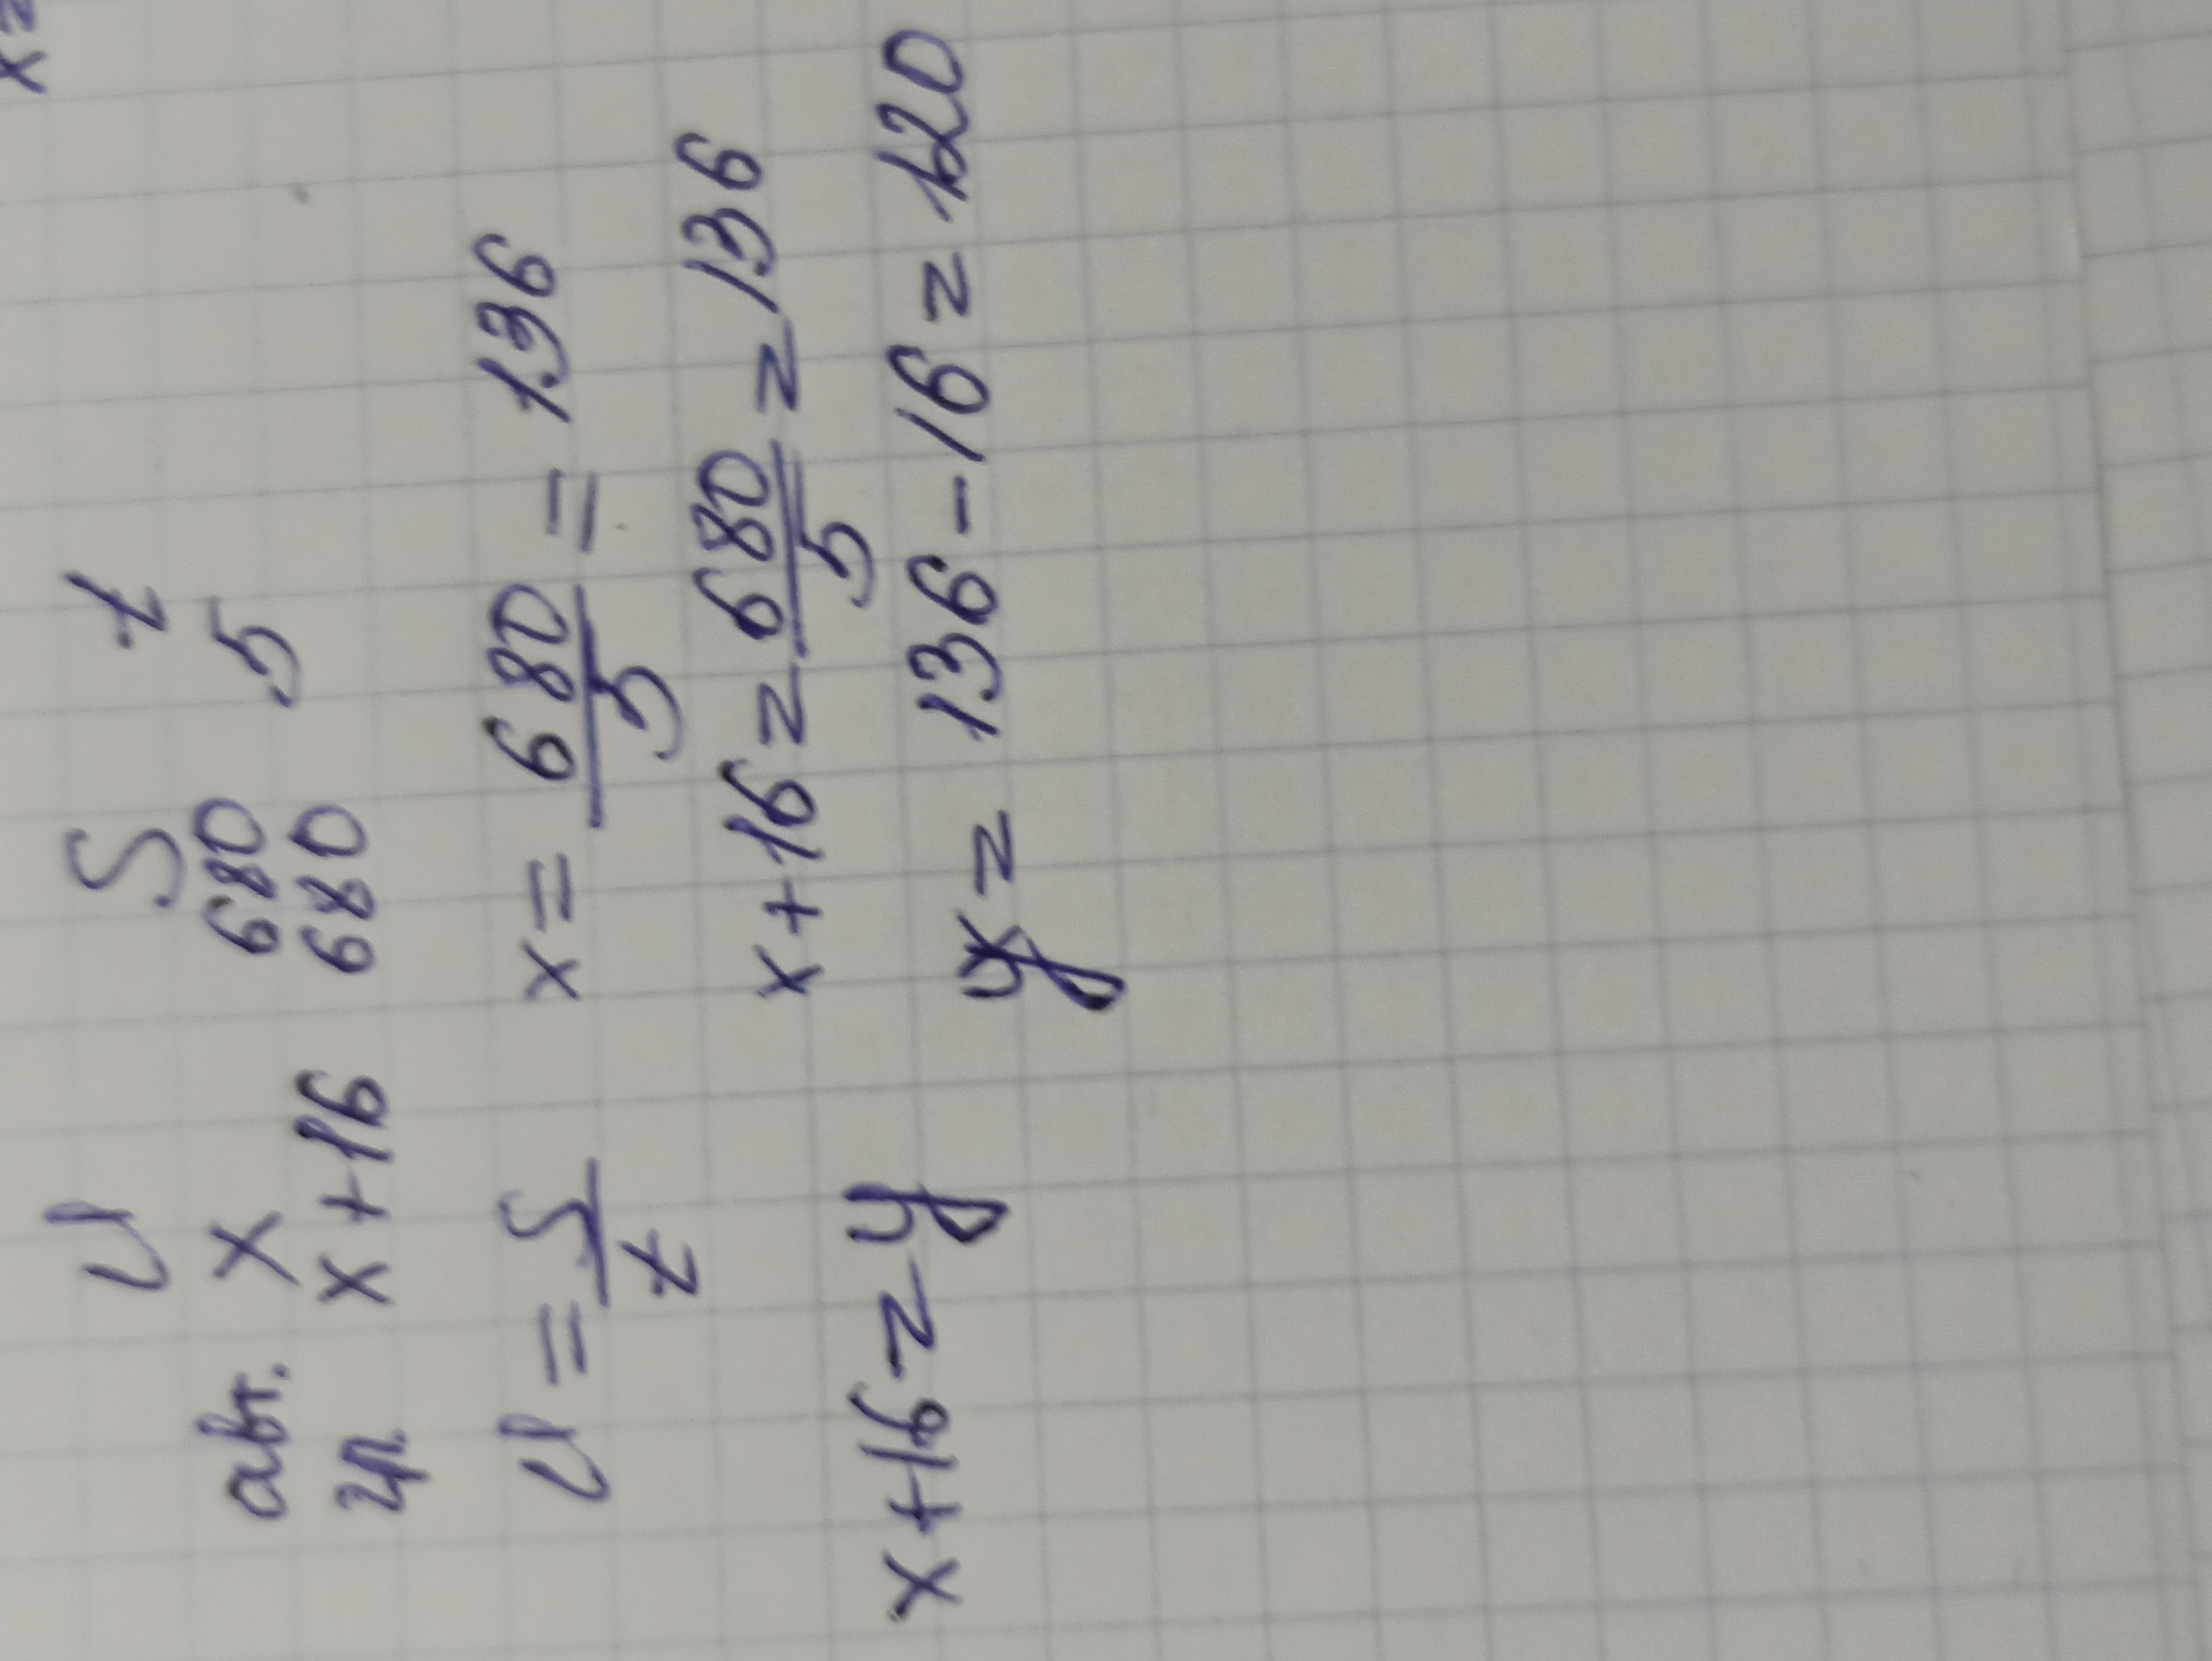 x=
U S t
авт. x 680 5
x+16 680
U = S/t x = 680/5 = 136
x+16 = 680/5 = 136
x+16 = y y = 136-16 = 120